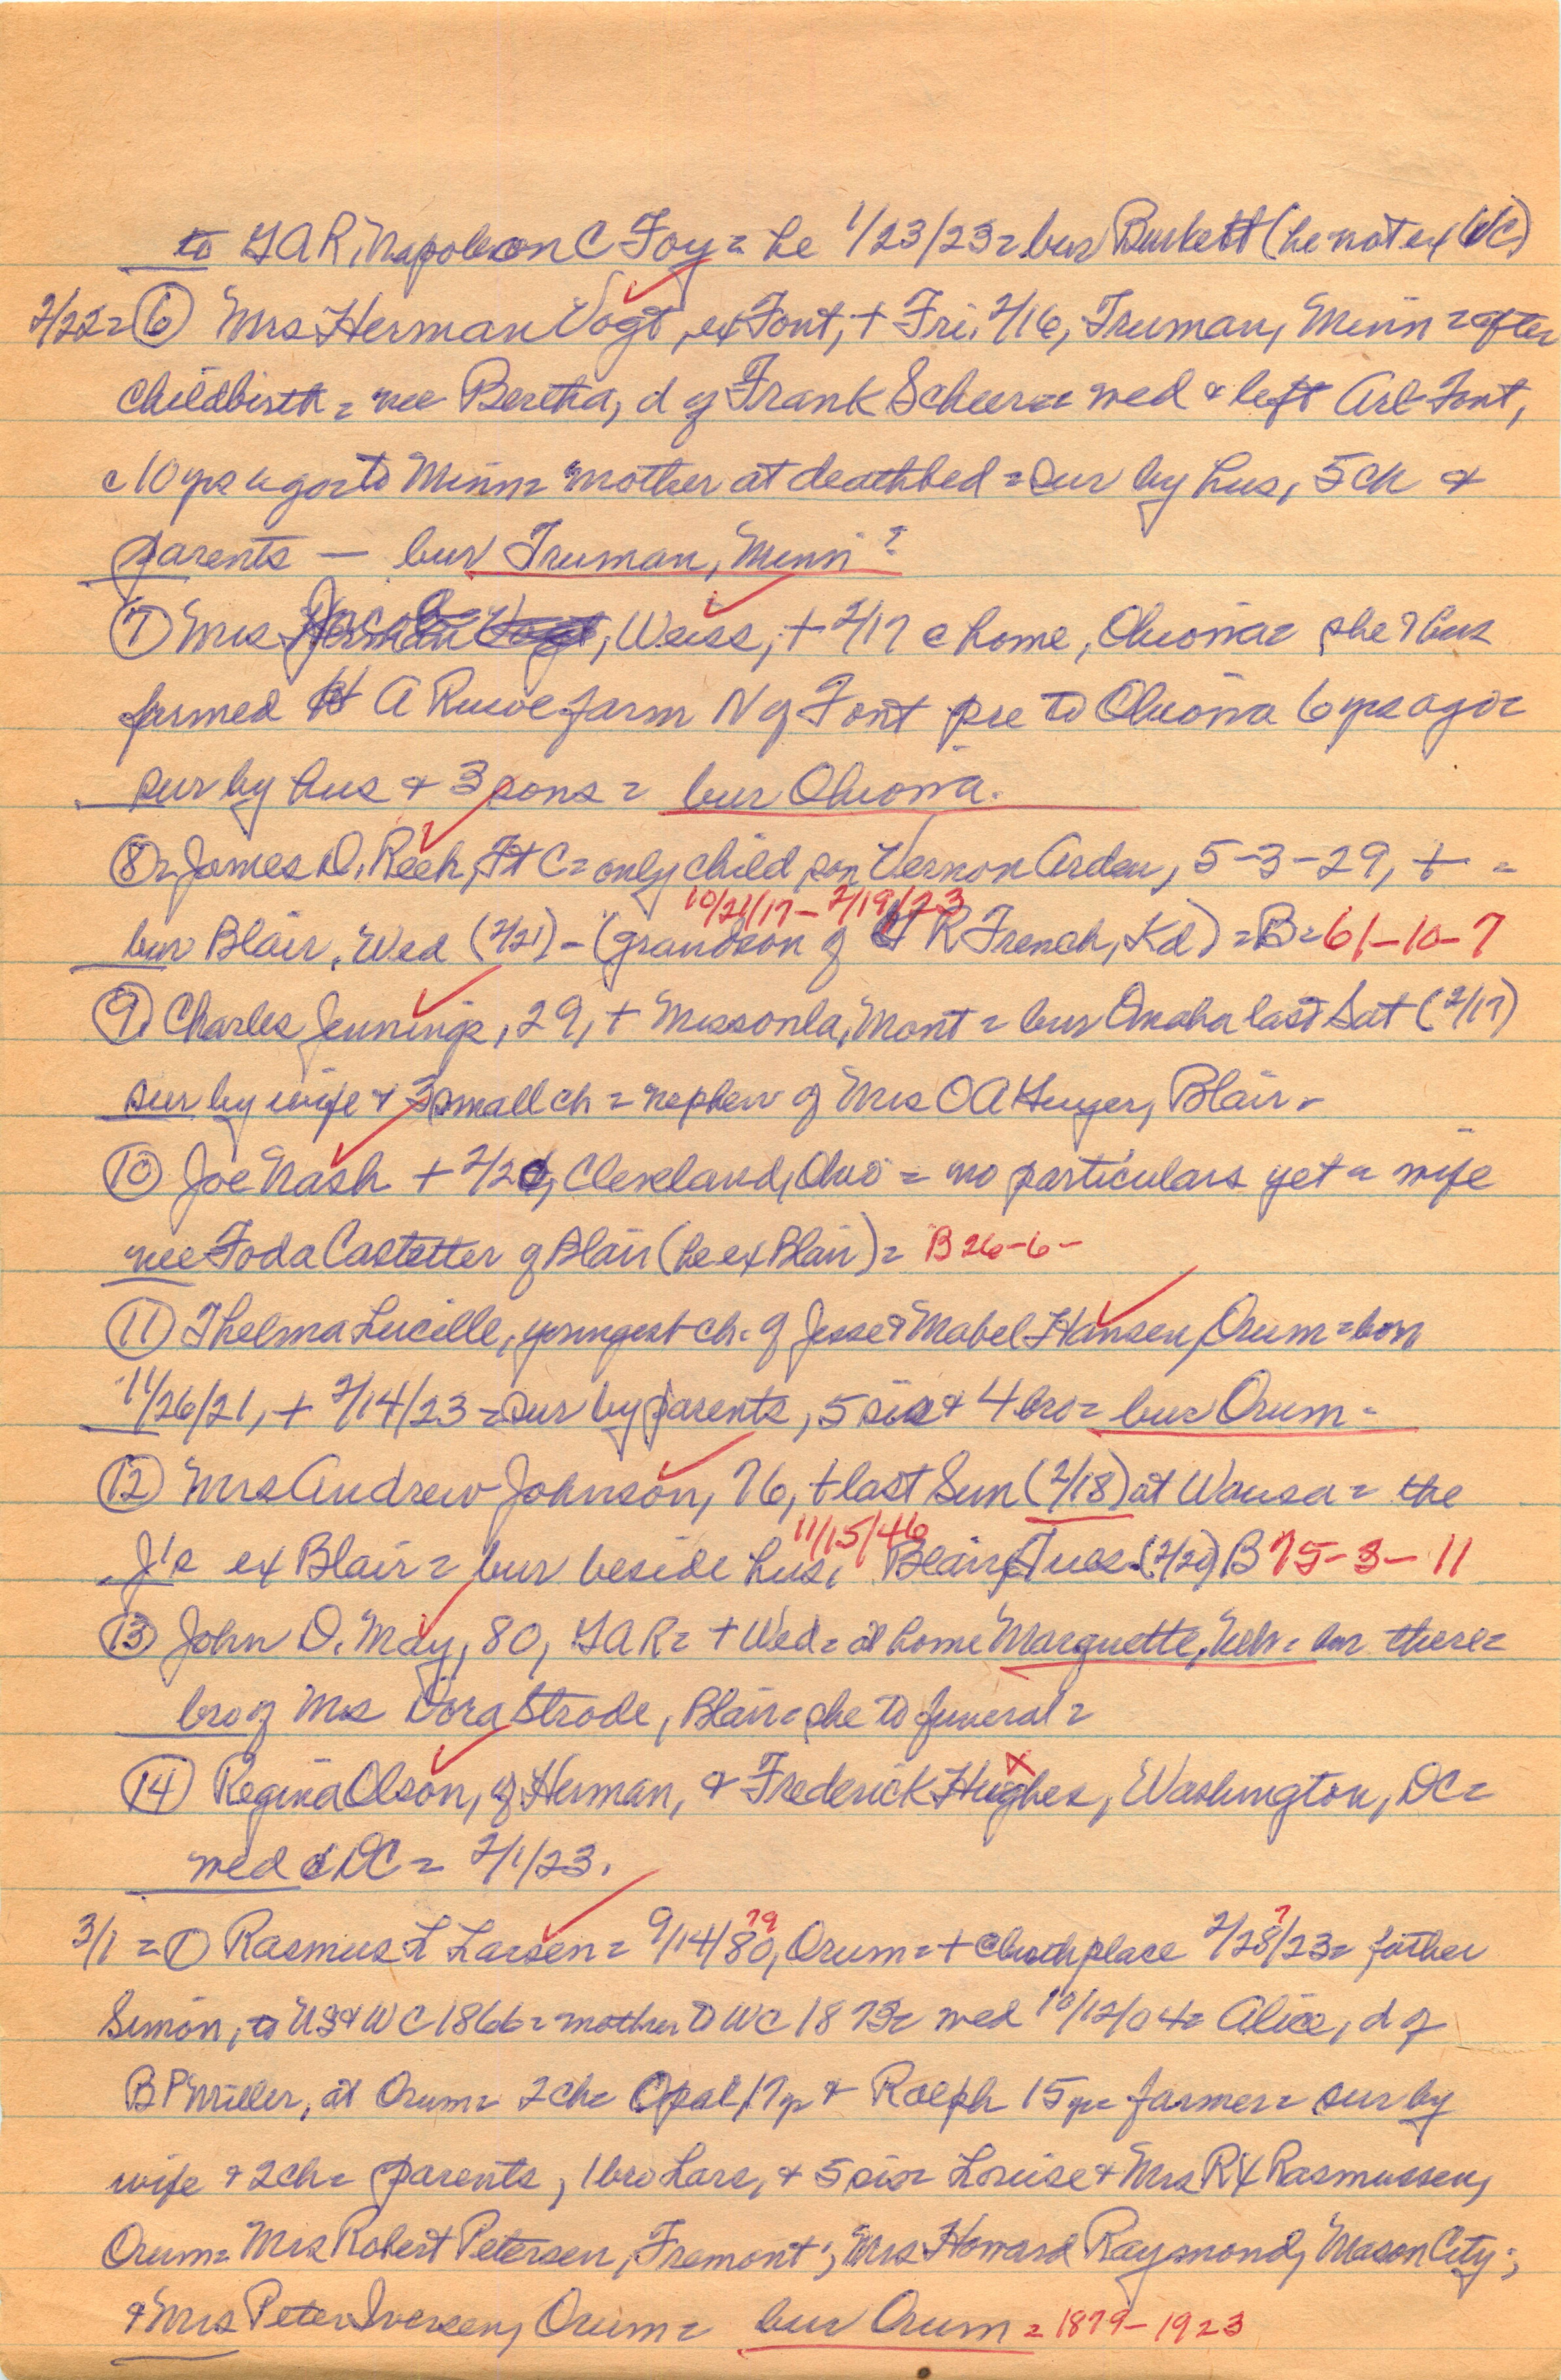 to GAR, Napoleon C Foy = he 1/23/23 = bur Burkett (he not ex WC)
2/22 = (6) Mrs Herman Vogt, ex Font, + Fri, 2/16, Truman, Minn = after
childbirth = nee Bertha, d of Frank Scheer = med & left Arl-Font,
c 10 yrs ago to Minn = mother at deathbed = sur by hus, 5 ch &
parents — bur Truman, Minn ?
(7) Mrs Jacob Weiss, + 2/17 @ home, Ohiowa = she & hus
farmed H A Ruwe farm N of Font pre to Ohiowa 6 yrs ago =
sur by hus & 3 sons = bur Ohiowa.
(8) = James D. Reeh, Ft C = only child, son Vernon Arden, 5-3-29, + =
10/21/17 – 2/19/23
bur Blair, Wed (2/21) – (grandson of H R French, Kd) = B = 61-10-7
(9) Charles Jennings, 29, + Missoula, Mont = bur Omaha last Sat (2/17)
sur by wife & 3 small ch = nephew of Mrs O A Huyer, Blair.
(10) Joe Nash + 2/20, Cleveland, Ohio = no particulars yet = wife
nee Foda Castetter of Blair (he ex Blair) = B 26-6-
(11) Thelma Lucille, youngest ch. of Jesse & Mabel Hansen, Orum = born
11/26/21, + 2/14/23 = sur by parents, 5 sis & 4 bro = bur Orum -
(12) Mrs Andrew Johnson, 76, + last Sun (2/18) at Wausa = the
11/15/46
J's ex Blair = bur beside hus, Blair, Tues. (2/20) B 75-3-11
(13) John D. May, 80, GAR = + Wed = at home Marquette, Neb = bur there =
bro of Mrs Dora Strode, Blair = she to funeral =
(14) Regina Olson, of Herman, & Frederick Hughes, Washington, DC =
med @ DC = 2/1/23.
79 ?
3/1 = (1) Rasmus L Larsen = 9/14/80, Orum = + @ birthplace 2/28/23 = father
Simon, to US & WC 1866 = mother to WC 1873 = med 10/12/04 = Alice, d of
B P Miller, at Orum = 2 ch = Opal 17 yr & Ralph 15 yr = farmer = sur by
wife & 2 ch = parents, 1 bro Lars, & 5 sis = Louise & Mrs R X Rasmussen,
Orum = Mrs Robert Petersen, Fremont; Mrs Howard Raymond, Mason City;
& Mrs Peter Iversen, Orum = bur Orum = 1879-1923